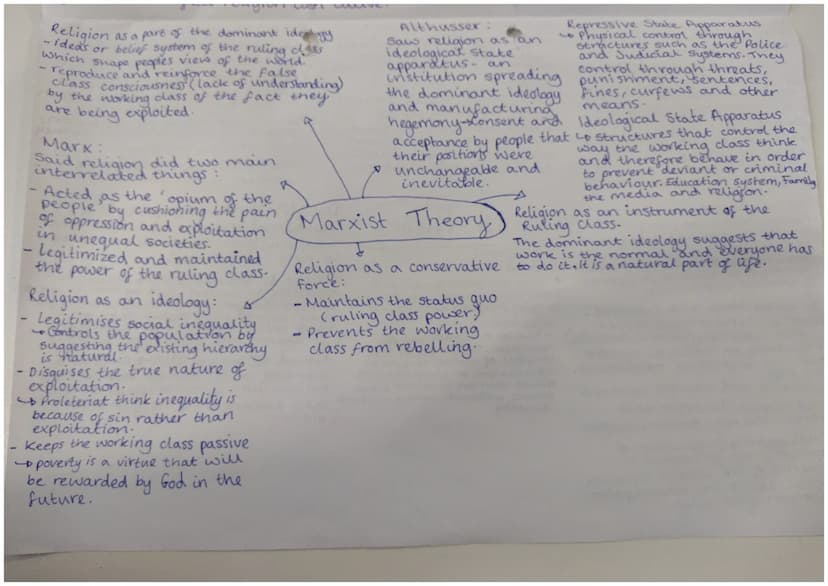 Religion as a part of the dominant ideology
- Ideas or belief system of the ruling class
which shape peoples view of the world.
- reproduce and reinforce the false
class consciousness (lack of understanding)
by the working class of the fact they
are being exploited.
Marx:
Said religion did two main
interrelated things:
- Acted as the 'opium of the
people by cushioning the pain
of oppression and exploitation
in unequal societies.
- Legitimized and maintained
the power of the ruling class.
Religion as an ideology:
- Legitimises social inequality
↳ Controls the population by
suggesting the existing hierarchy
is natural.
- Disguises the true nature of
exploitation.
↳ Proleteriat think inequality is
because of sin rather than
exploitation.
- Keeps the working class passive
↳ poverty is a virtue that will
be rewarded by God in the
future.
Marxist Theory
Religion as a conservative
force:
- Maintains the status quo
(ruling class power)
- Prevents the working
class from rebelling.
Althusser:
Saw religion as an
ideological state
apparatus - an
institution spreading
the dominant ideology
and manufacturing
hegemony→consent and
acceptance by people that
their positions were
unchangeable and
inevitable.
Repressive State Apparatus
↳ Physical control through
structures such as the Police
and Judicial systems. They
control through threats,
punishment, sentences,
fines, curfews and other
means.
Ideological State Apparatus
↳ Structures that control the
way the working class think
and therefore behave in order
to prevent deviant or criminal
behaviour. Education system, Family
the media and religion.
Religion as an instrument of the
Ruling class.
The dominant ideology suggests that
work is the normal and everyone has
to do it. It is a natural part of life.